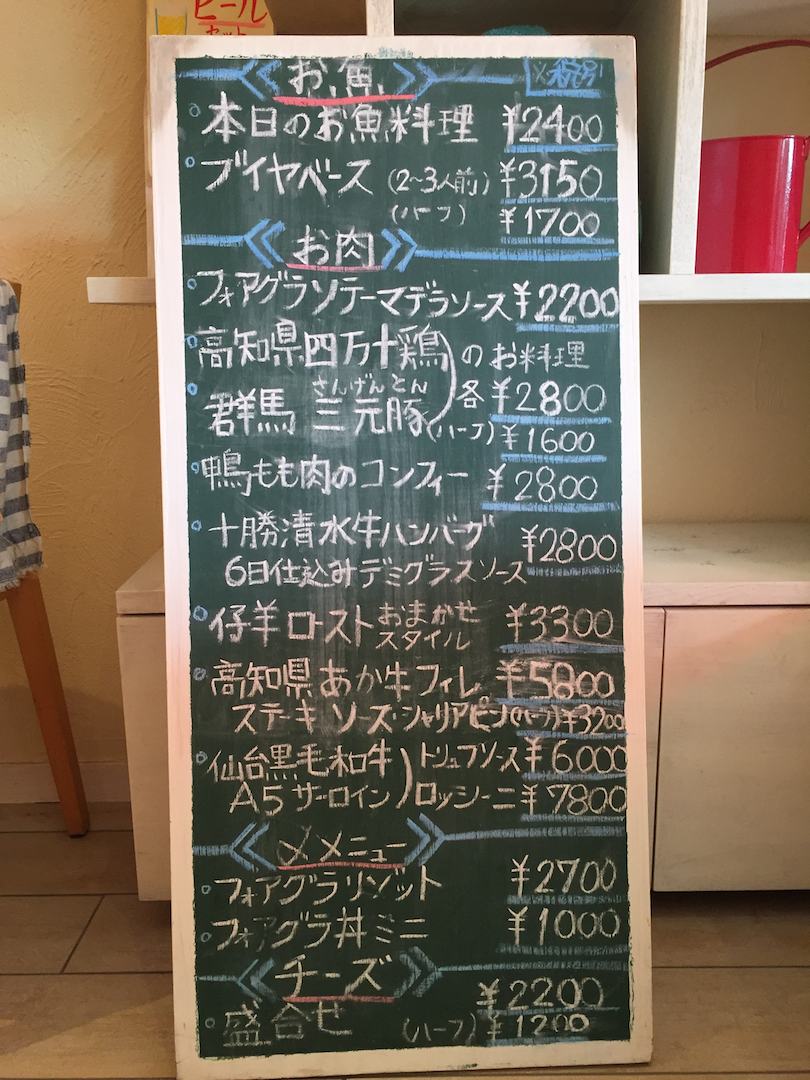 ビール
セット
お魚
※税別
本日のお魚料理 ¥2400
ブイヤベース (2〜3人前) ¥3150
(ハーフ) ¥1700
お肉
フォアグラソテーマデラソース ¥2200
高知県四万十鶏 のお料理
さんげんとん
群馬 三元豚 各 ¥2800
(ハーフ) ¥1600
鴨もも肉のコンフィー ¥2800
十勝清水牛ハンバーグ ¥2800
6日仕込みデミグラスソース
仔羊ロースト おまかせ ¥3300
スタイル
高知県あか牛フィレ ¥5800
ステーキ ソース・シャリアピン (ハーフ) ¥3200
仙台黒毛和牛 トリュフソース ¥6000
A5サーロイン ロッシーニ ¥7800
〆メニュー
フォアグラリゾット ¥2700
フォアグラ丼ミニ ¥1000
チーズ
盛合せ ¥2200
(ハーフ) ¥1200